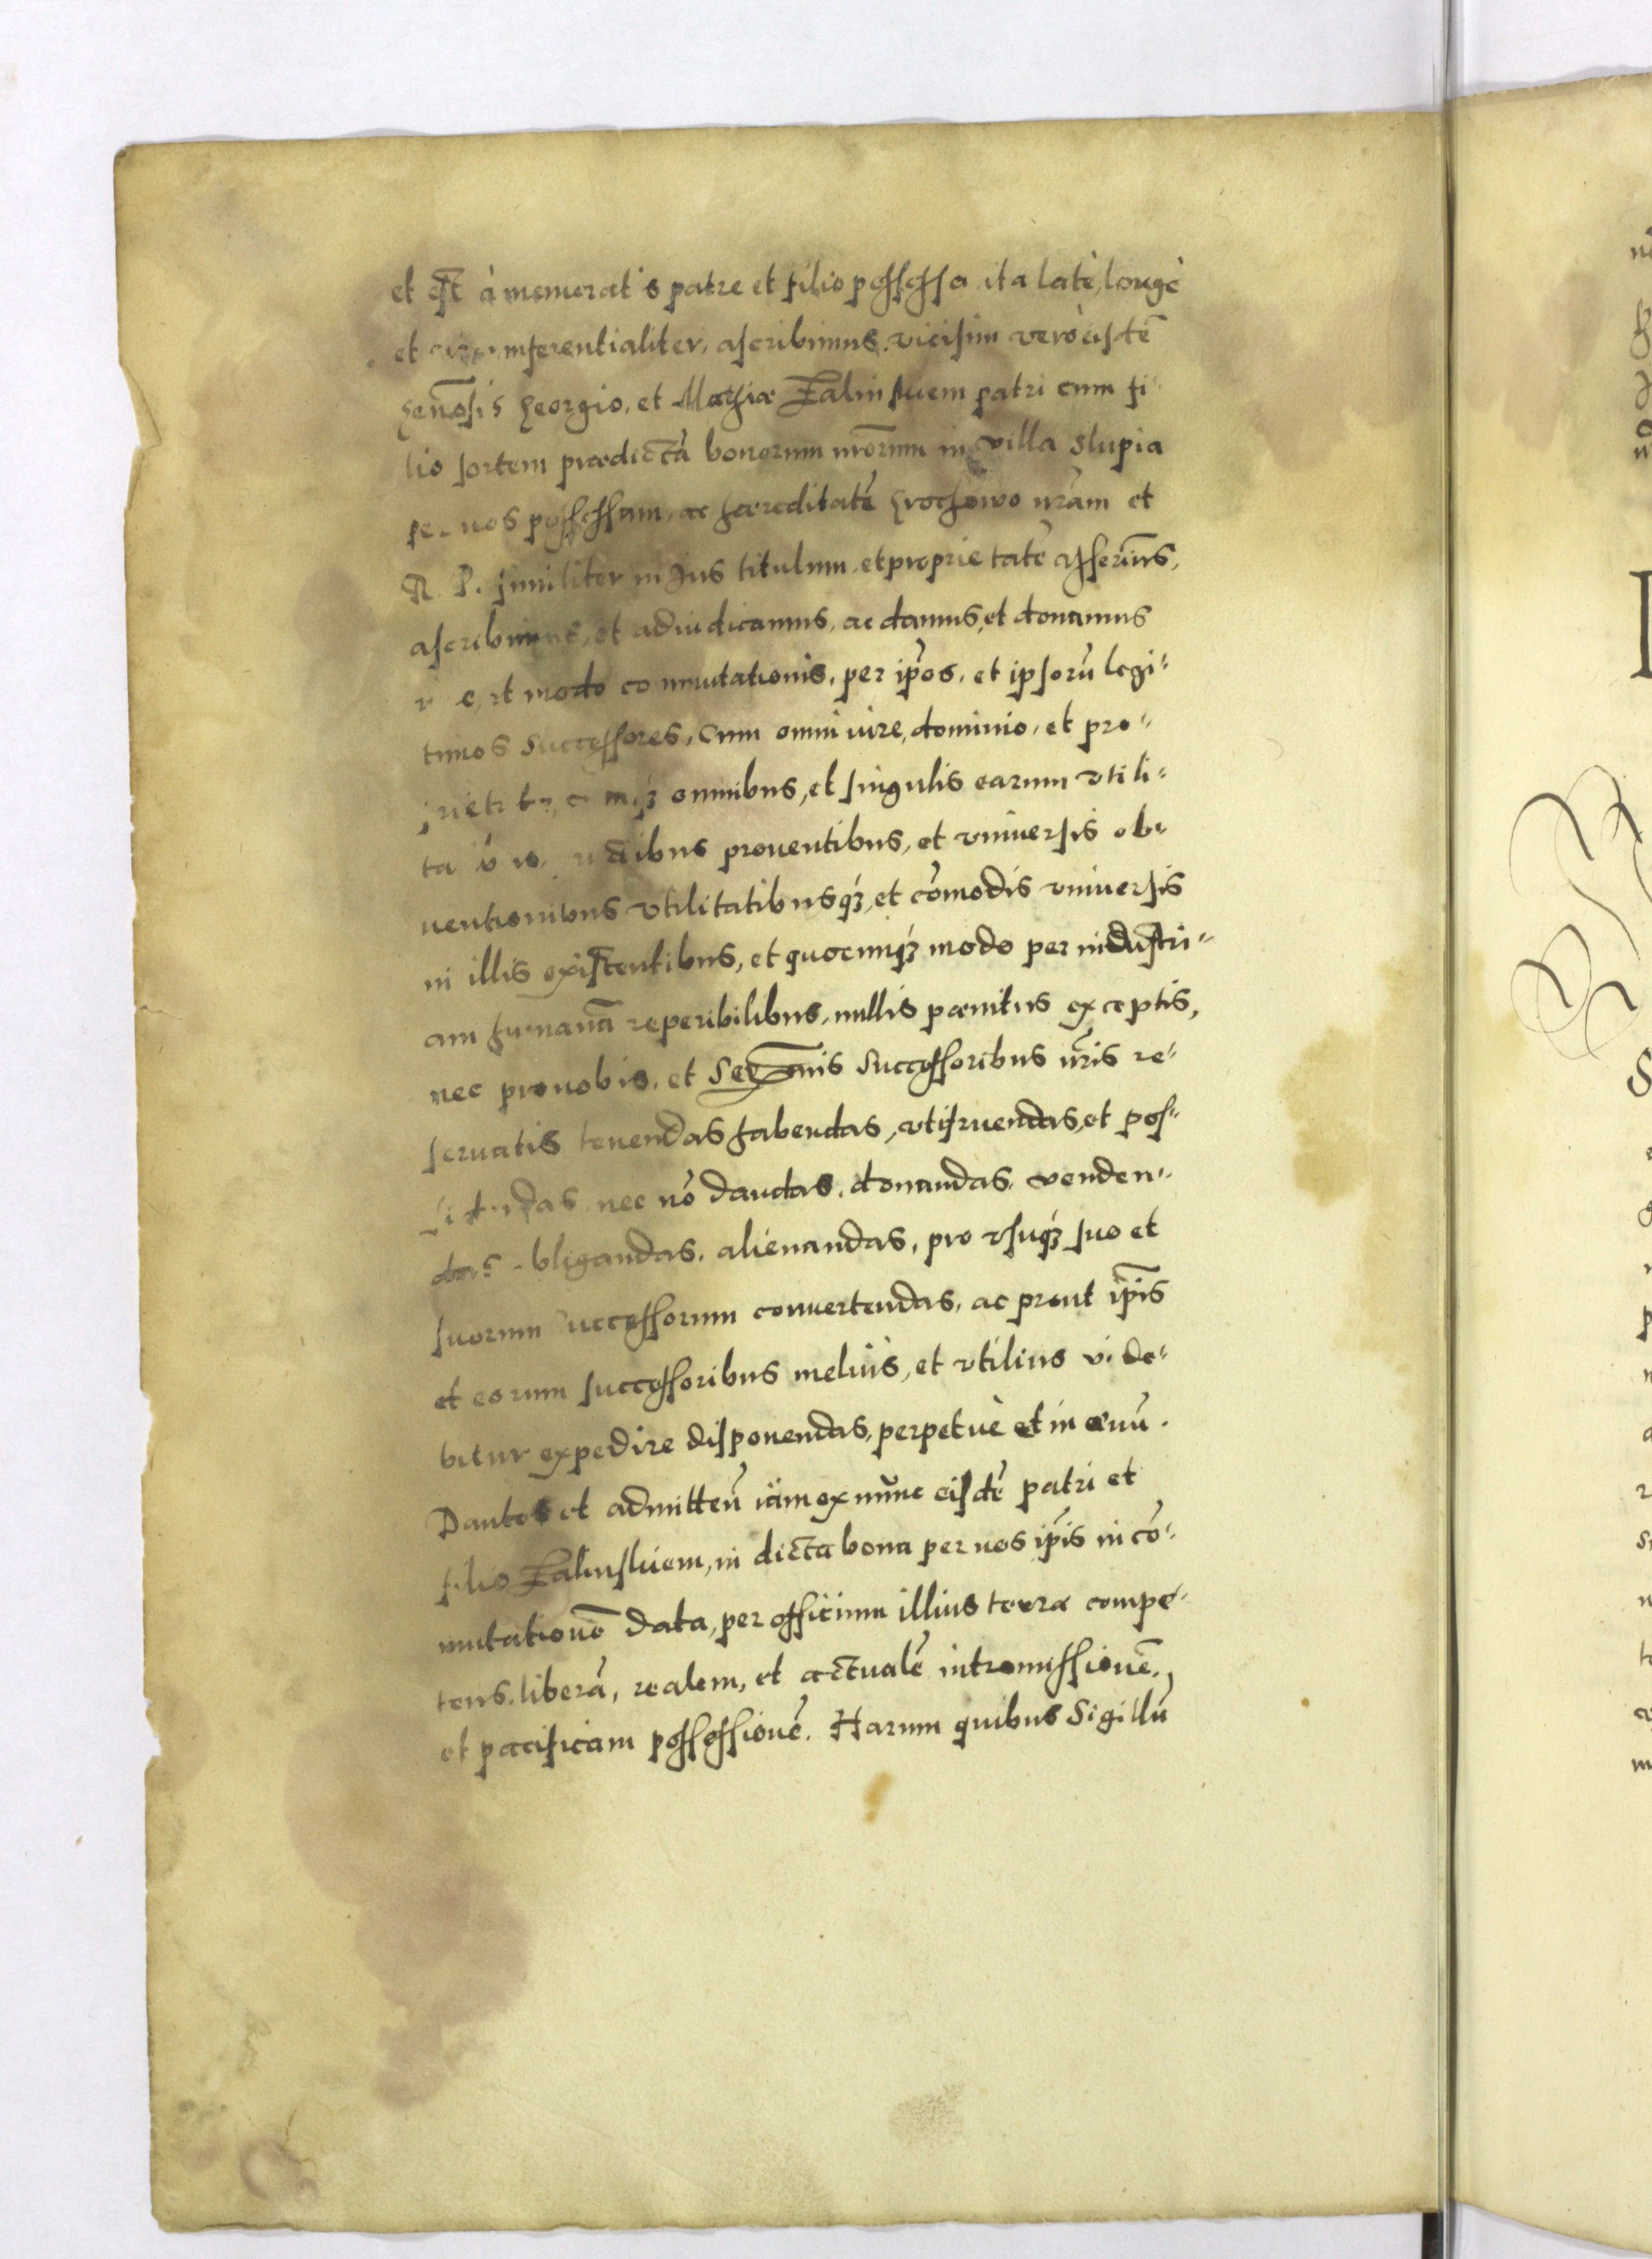 et est à memoratis patre et filio possessa ita latè, longè
et circumferentialiter, ascribimus. vicisim verò eisdē
Genosis Georgio, et Mathiæ Zalinskiem patri cum fi-
lio sortem prædictā bonorum nrōrum in villa Slupia
per nos possessam, ac hæreditatē Grochowo nrām et
R. P. similiter in Jus titulum et proprietatē asserims,
ascribimus, et adiudicamus, ac damus, et donamus
et modo commutationis, per ipōs, et ipsorū legi-
timos Successores, Cum omni iure, dominio, et pro-
omnibus, et singulis earum vtili-
prouentibus, et vniuersis ob-
uentionibus vtilitatibusqȝ, et cōmodis vniuersis
in illis existentibus, et quocunqȝ modo per industri-
am humanā reperibilibus, nullis pænitus exceptis,
nec pro nobis, et Serenmis Successoribus nrīs re-
seruatis tenendas habendas, vtifruendas, et pos-
sidendas nec nō dandas, donandas, venden-
das obligandas, alienandas, pro vsuqȝ suo et
suorum Successorum conuertendas, ac prout ipīs
et eorum successoribus meliùs, et vtilius vide-
bitur expedire disponendas, perpetuè et in æuū.
Dantes et admitteñ iàm ex nunc eisdē patri et
filio Zalinskiem, in dicta bona per nos ipīs in cō-
mutationē data, per officium illius terræ compe-
tens, liberā, realem, et actualē intromissionē,
et pacificam possessionē. Harum quibus Sigillū